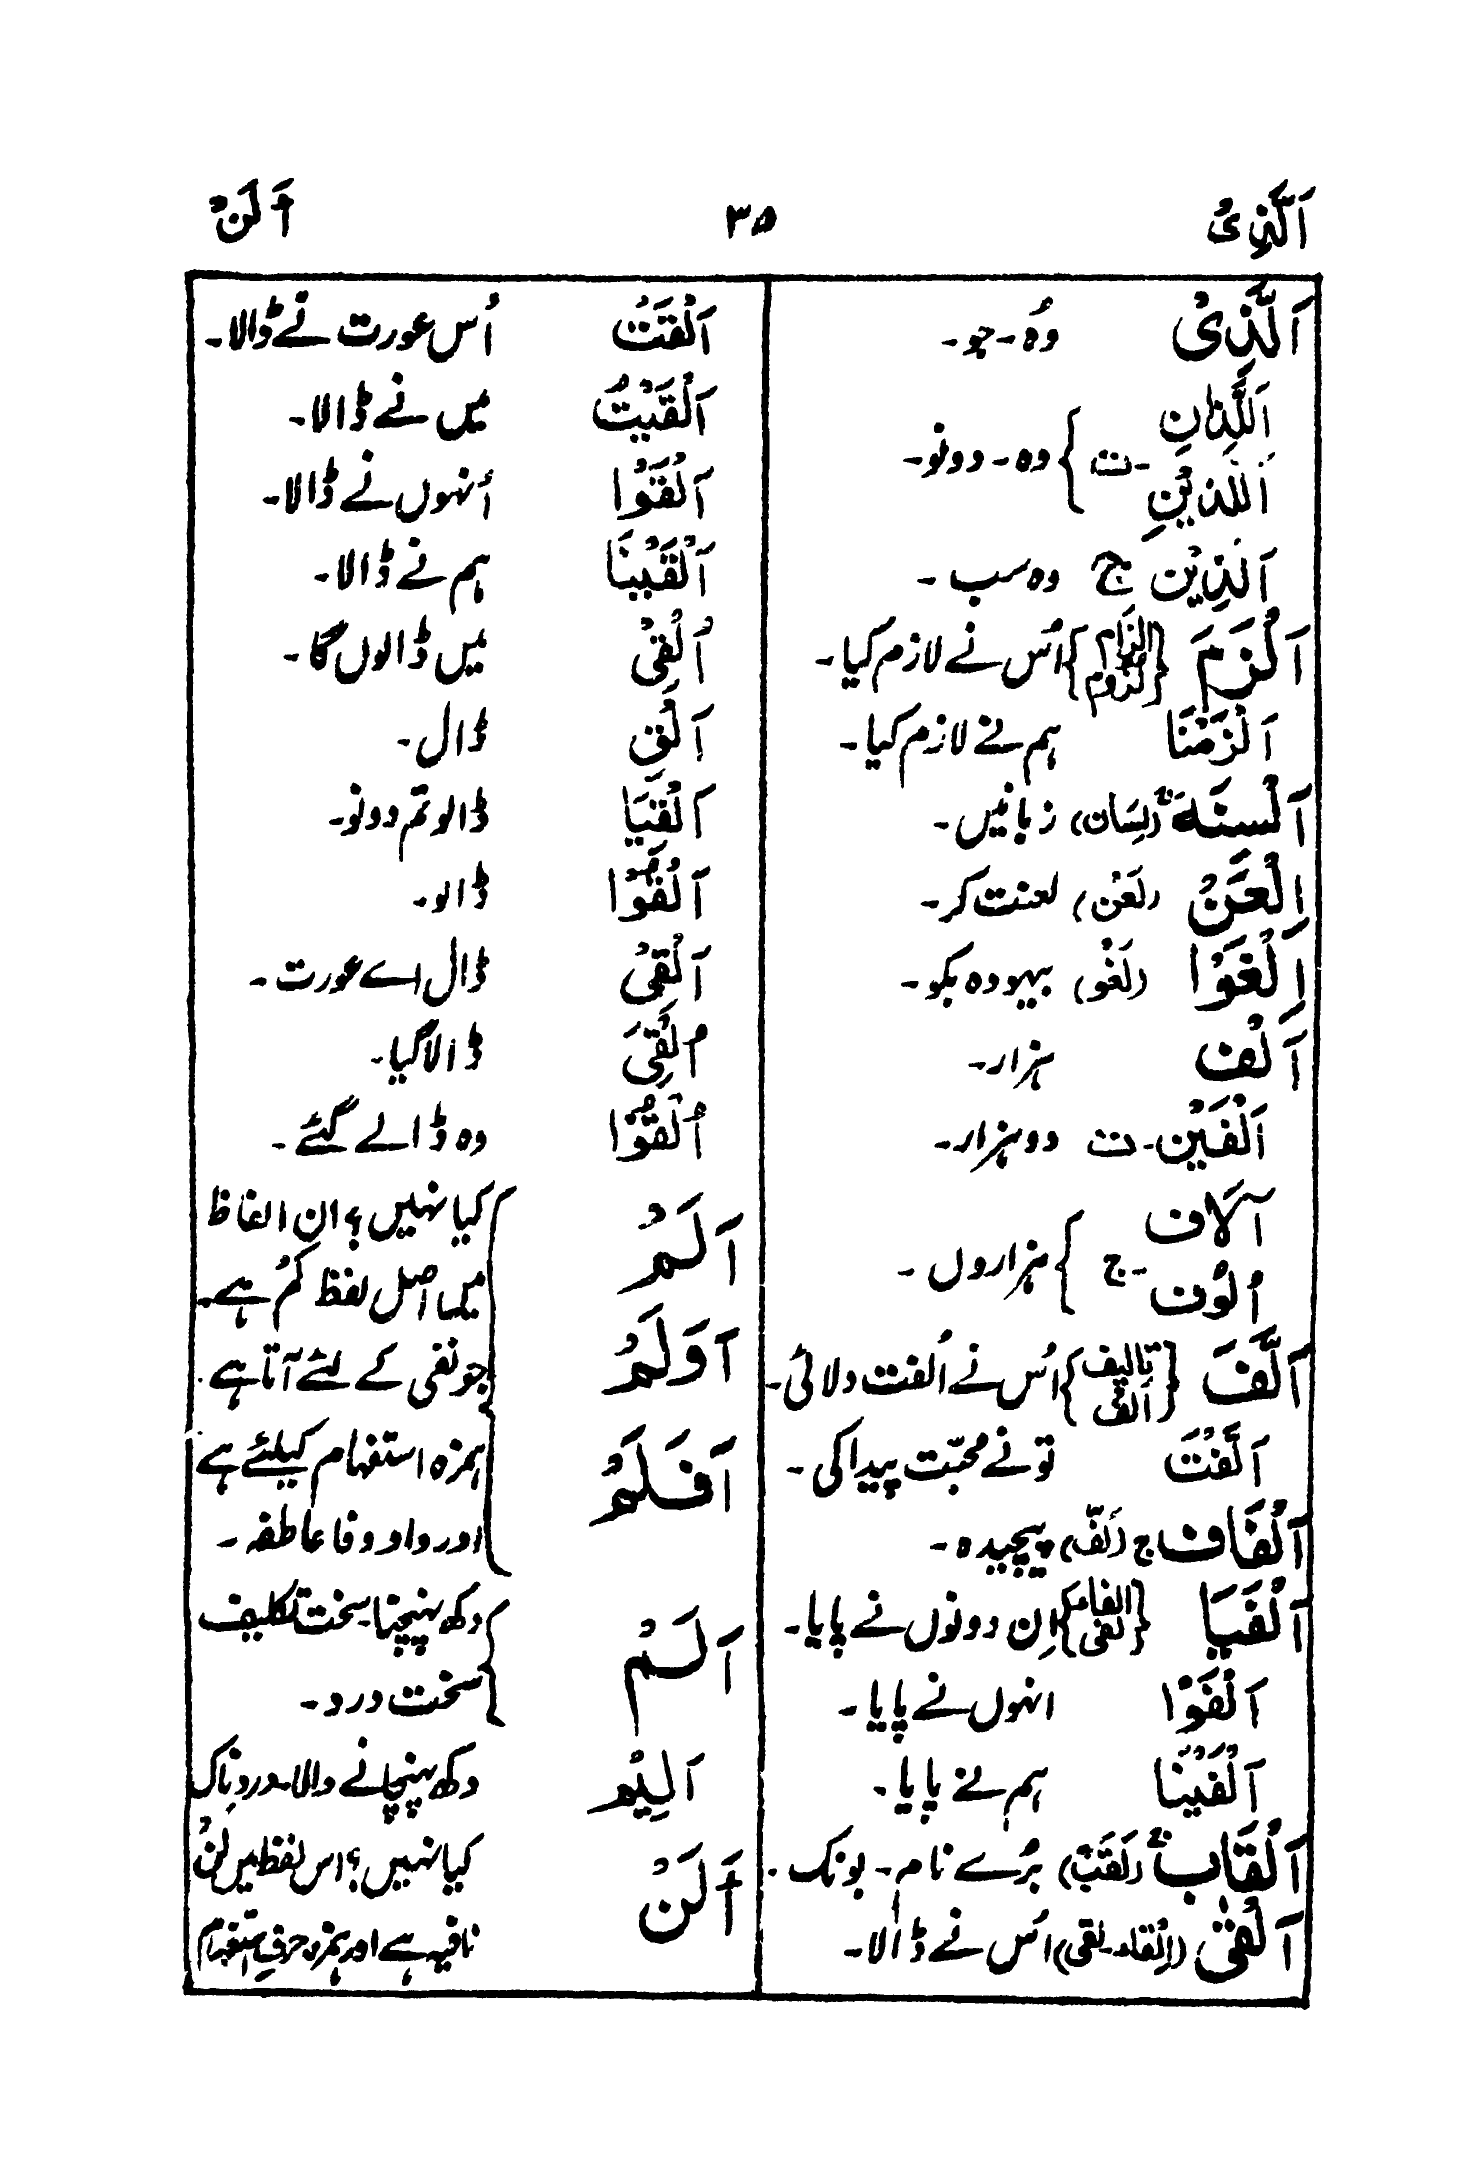 اَلَّذِیْ ۳۵ اَلَنْ
اَلَّذِیْ وُہ۔ جو۔
اَللَّذَانِ
اَللَّذَیْنِ ۔ت } وہ۔ دونو۔
اَلَّذِیْنَ ج وہ سب ۔
اَلْزَمَ {الزام لزوم} اُس نے لازم کیا۔
اَلْزَمْنَا ہم نے لازم کیا۔
اَلْسِنَۃٌ (لِسَان) زبانیں۔
اِلْعَنْ (لَعْن) لعنت کر۔
اِلْغَوْا (لَغْو) بیہودہ بکو۔
اَلْف ہزار۔
اَلْفَیْن۔ ت دو ہزار۔
آلَاف
اُلُوْف ۔ج } ہزاروں ۔
اَلَّفَ {تالیف اَلْف} اُس نے اُلفت دلائی۔
اَلَّفْتَ تو نے محبّت پیدا کی ۔
اَلْفَاف ج (لَفّ) پیچیدہ ۔
اَلْفَیَا {الفاء لفی} اِن دونوں نے پایا۔
اَلْفَوْا انہوں نے پایا ۔
اَلْفَیْنَا ہم نے پایا ۔
اَلْقَاب (لَقَبْ) بُرے نام ۔ بونک ۔
اَلْقٰی (اِلْقَاء۔ لقی) اُس نے ڈالا۔
اَلْقَتْ اُس عورت نے ڈالا۔
اَلْقَیْتُ میں نے ڈالا۔
اَلْقَوْا اُنہوں نے ڈالا۔
اَلْقَیْنَا ہم نے ڈالا۔
اُلْقِیْ میں ڈالوں گا۔
اَلْقِ ڈال۔
اَلْقِیَا ڈالو تم دونو۔
اَلْقُوْا ڈالو۔
اَلْقِیْ ڈال اے عورت ۔
اُلْقِیَ ڈالا گیا۔
اُلْقُوْا وہ ڈالے گئے ۔
اَلَمْ کیا نہیں ؟ ان الفاظ
میں اصل لفظ لَمْ ہے۔
اَوَلَمْ جو نفی کے لئے آتا ہے۔
اَفَلَمْ ہمزہ استفہام کیلئے ہے
اور واو و فا عاطفہ ۔
اَلَم دکھ پہنچنا۔ سخت تکلیف
سخت درد ۔
اَلِیْم دکھ پہنچانے والا۔ دردناک
اَلَنْ کیا نہیں ؟ اس لفظ میں لَنْ
نافیہ ہے اور ہمزہ حرفِ استفہام